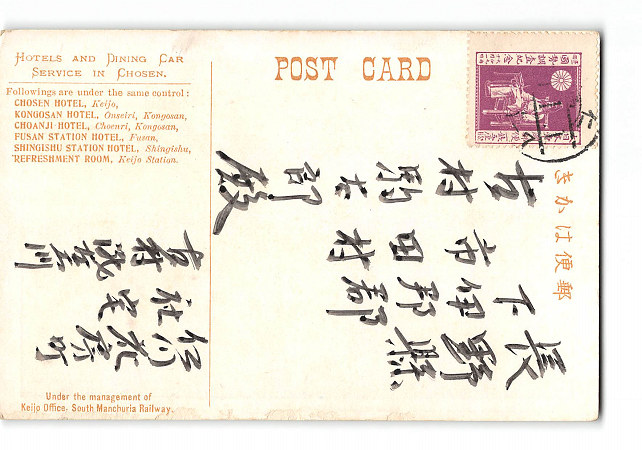 HOTELS AND DINING CAR
SERVICE IN CHOSEN.
Followings are under the same control:
CHOSEN HOTEL, Keijo,
KONGOSAN HOTEL, Onseiri, Kongosan,
CHOANJI HOTEL, Choenri, Kongosan,
FUSAN STATION HOTEL, Fusan,
SHINGISHU STATION HOTEL, Shingishu,
REFRESHMENT ROOM, Keijo Station.
POST CARD
きかは便郵
第一回國勢調査紀念
長野縣
下伊那郡
市田村
吉村
殿
仁川花房町
社宅
吉村
Under the management of
Keijo Office, South Manchuria Railway.